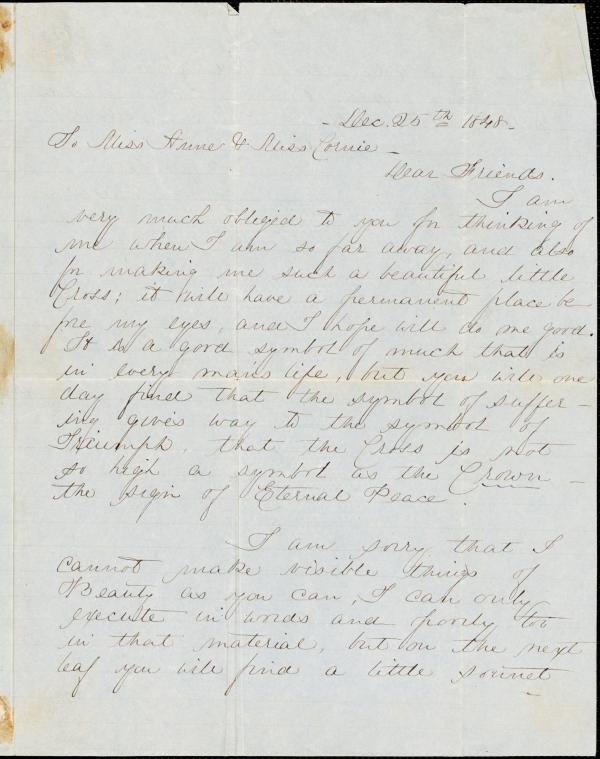 - Dec. 25th 1848 -
To Miss Anne & Miss Cornie -
Dear Friends.
I am
very much obliged to you for thinking of
me when I am so far away, and also
for making me such a beautiful little
Cross; it will have a permanent place be
fore my eyes, and I hope will do me good.
It is a good symbol of much that is
in every mans life, but you will one
day find that the symbol of suffer -
ing gives way to the symbol of
Triumph, that the Cross is not
so high a symbol as the Crown -
the sign of Eternal Peace.
I am sorry that I
cannot make visible things of
Beauty as you can, I can only
execute in words and poorly too
in that material, but on the next
leaf you will find a little sonnet